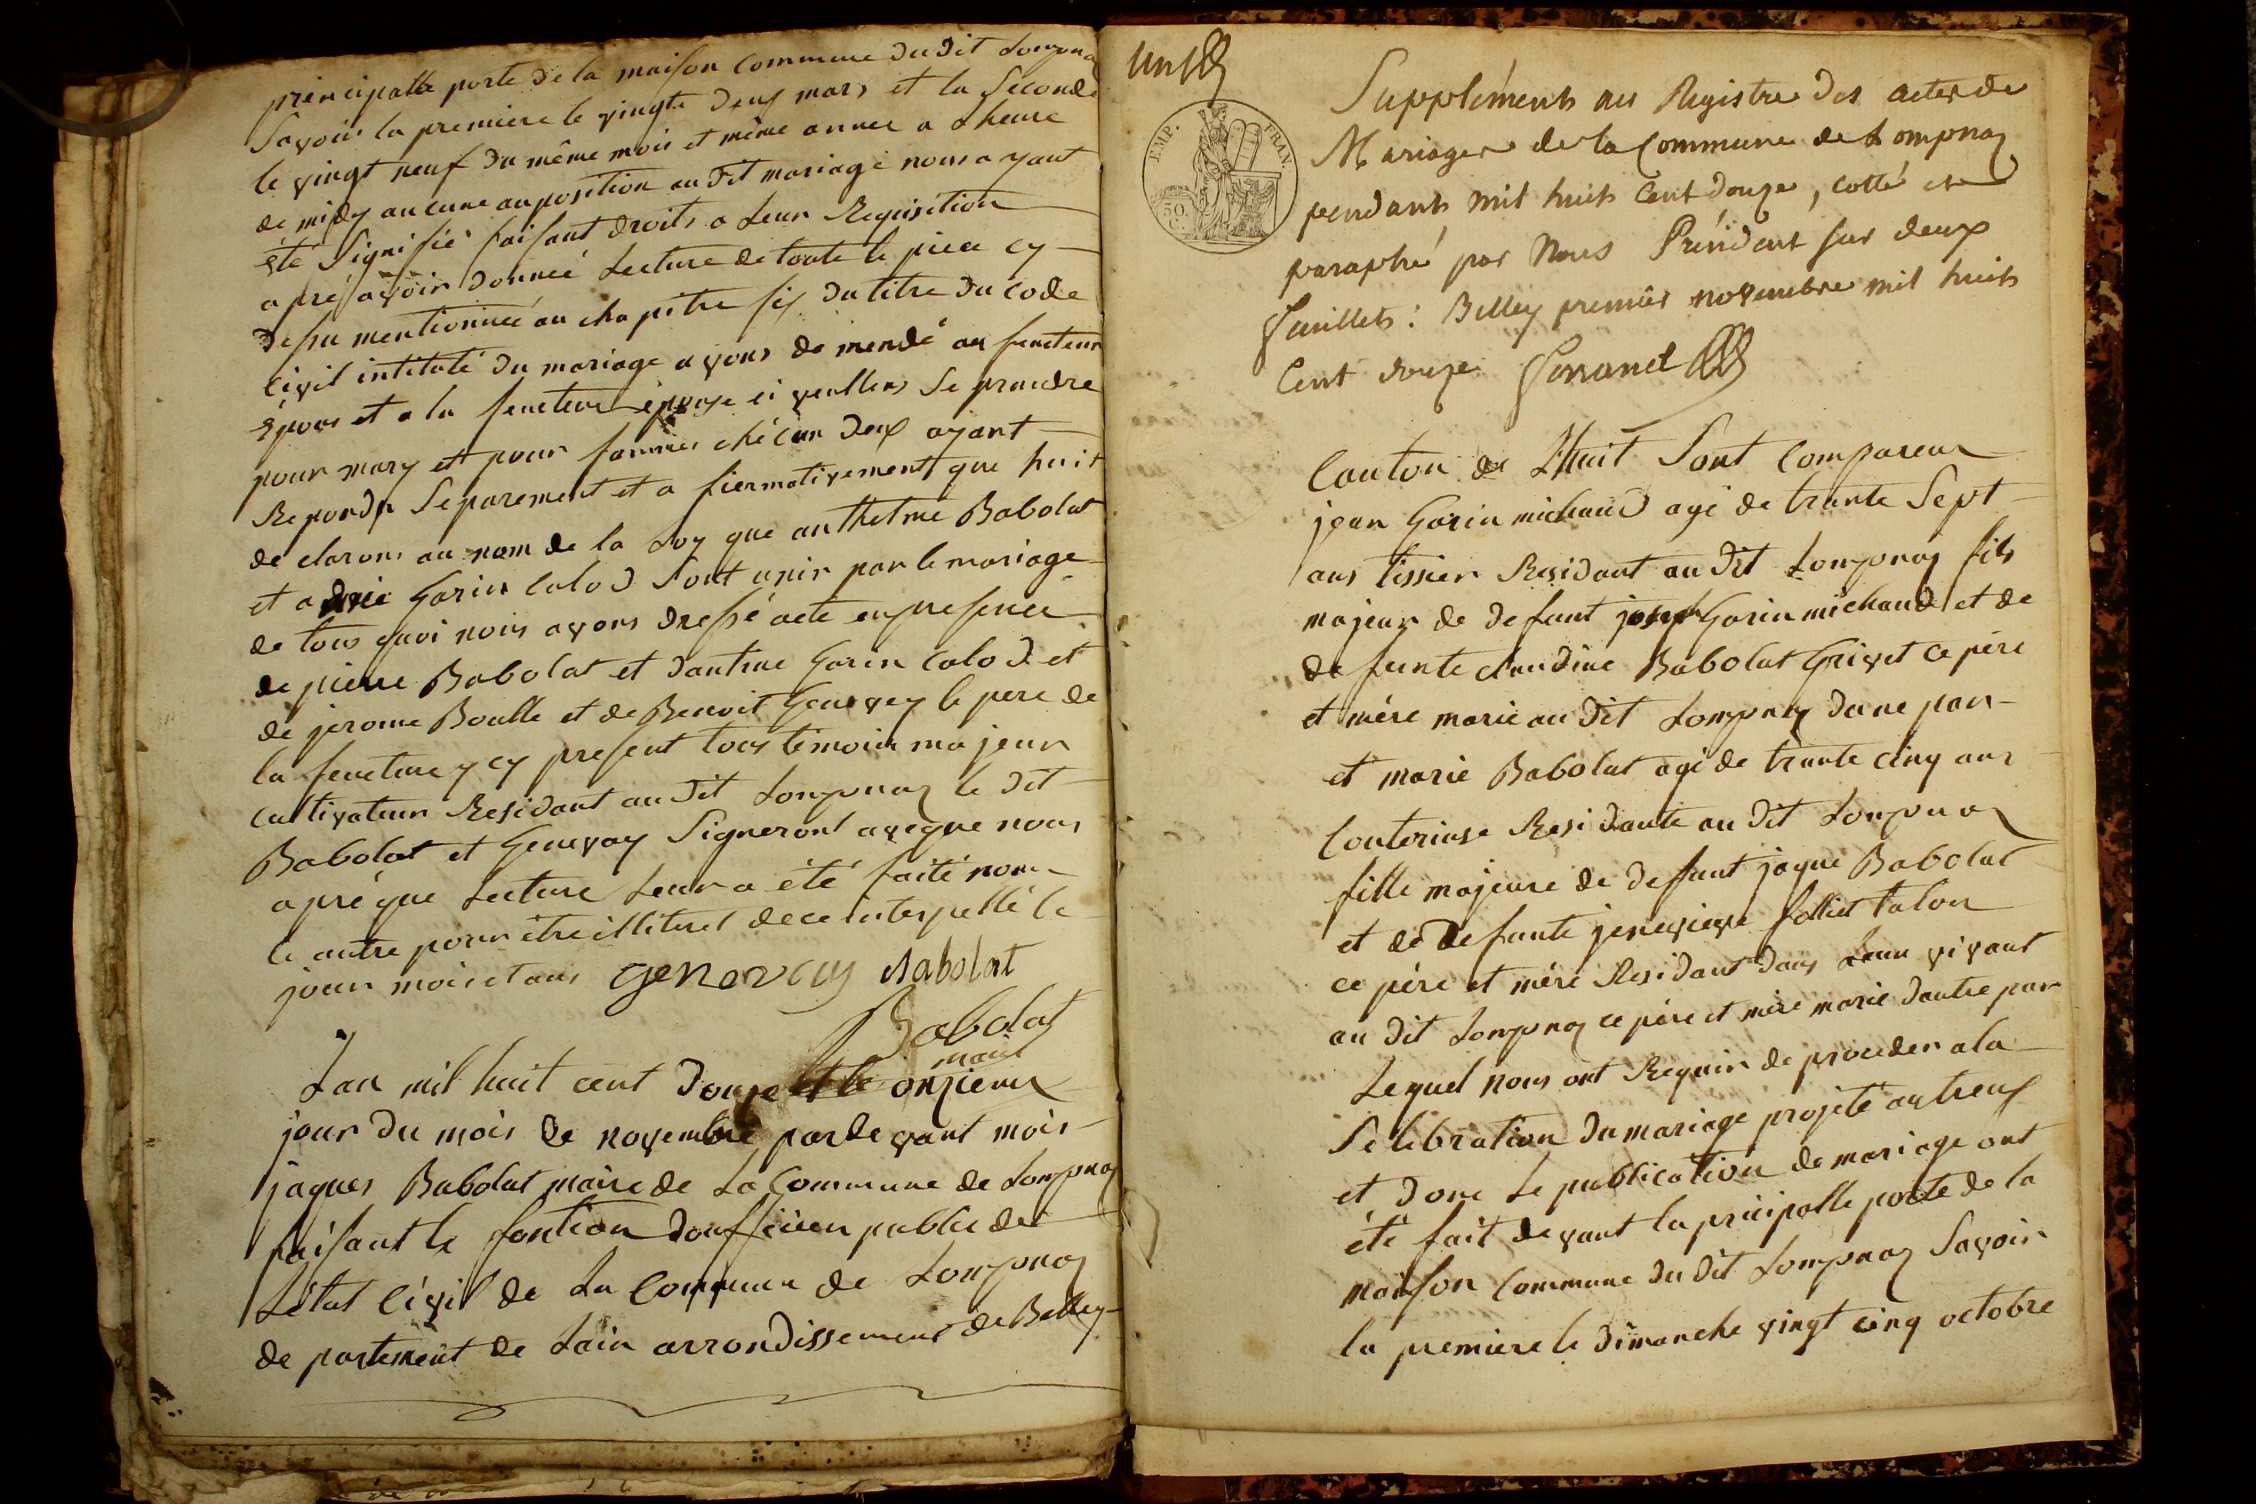 principalle porte de la maison commune du dit Lompnaz
Savoir la premiere le vingte deux mars et la Seconde
le vingt neuf du même mois et même annee a Lheure
de midy aucune auposition au dit mariage nous ayant
été Signifié faisant droits a Leur Requisition
apré avoir donneé Lecture de toute le piece cy
desu mentionneé au chapitre six du titre du code
Civil intitulé du mariage avons de mendé au feucteur
épous et a la feucteure epouse ci veullens Se prandre
pour mary et pour fammes chécun deux ayant
Repondu Separement et a fiermativement que huit
de clarons au nom de la Loy que anthelme Babolat
et Garin Calod Sont unir par le mariage
de tous quoi nous avons dressé acte en presence
de pierre Babolat et dautrue Garin Calod et
de jerome Boulle et de Benoit Genevey le pere de
la feucture y cy present tous temoin majeur
cultivateur Residant au dit Lompnaz le dit
Babolat et Genevay Signeront aveque nous
apré que Lecture Leur a été faite nom
le autre pour être illiteret de ce interpellé le
jour mois et ans Genevay Babolat
Babolat
maire
Lan mil huit cent douze et le onzieme
jour du mois de novembre parde vant mois
jaques Babolat maire de La Commune de Lompnaz
faisant le fontion douficien public de
Létat Civil de La Commune de Lompnaz
de partement de Lain arrondissement de Belley
un
EMP. FRAN.
50 C.
Suppléments au Registre des actes de
Mariages de la Commune de Lompnaz
pendants mil huit Cent douze, cotté et
paraphé par Nous Président sur deux
feuillets : Belley premier novembre mil huit
Cent douze
Canton de Lhuit Sont Compareur
jean Garin michaud agé de trante Sept
ans tissier Residant au dit Lompnaz fils
majeur de defunt joseph Garin michaud et de
defunte claudine Babolat Grivet ce pére
et mére marie au dit Lompnaz dune par-
et marie Babolat agé de trante cinq ans
Couterieuse Residante au dit Lompnaz
fille majeure de defunt jaque Babolat
et de defunte jenevieve folliet talon
ce pére et mére Residant dans Leur vivant
au dit Lompnaz ce pére et mére marie dautre par
Lequel nous ont Requir de proceder a la
Selebration du mariage projété autreux
et donc Le publication de mariage ont
été fait devant la principalle porte de la
maison Commune du dit Lompnaz Savoir
la premiere le dimanche vingt cinq octobre